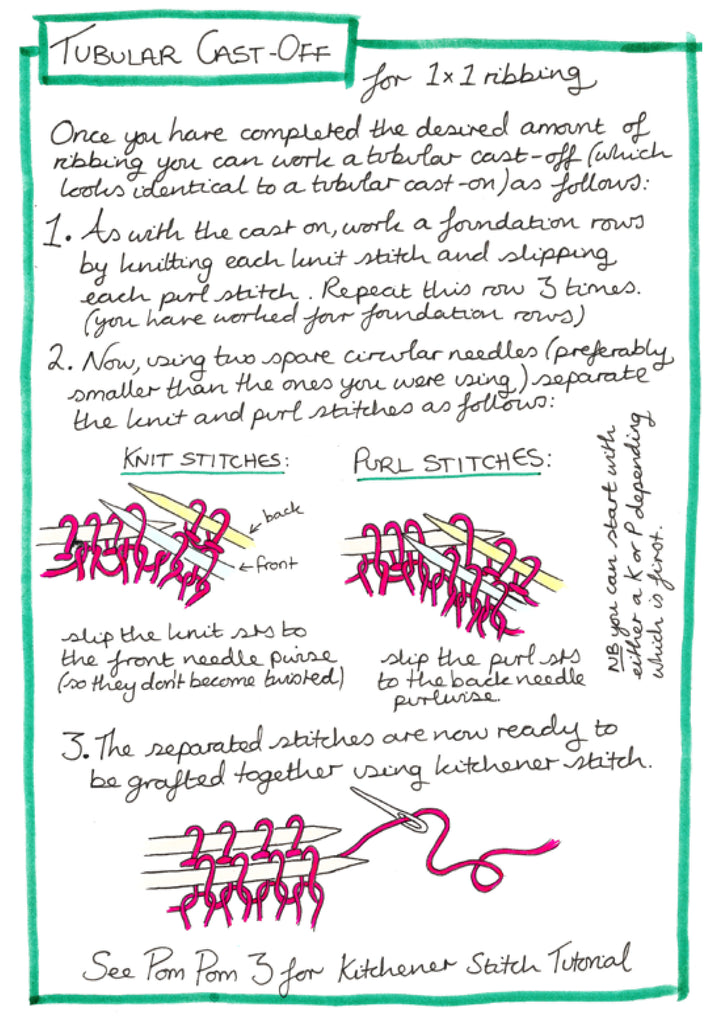 TUBULAR CAST-OFF
for 1x1 ribbing
Once you have completed the desired amount of
ribbing you can work a tubular cast-off (which
looks identical to a tubular cast-on) as follows:
1. As with the cast on, work a foundation rows
by knitting each knit stitch and slipping
each purl stitch. Repeat this row 3 times.
(you have worked four foundation rows)
2. Now, using two spare circular needles (preferably
smaller than the ones you were using,) separate
the knit and purl stitches as follows:
KNIT STITCHES:
back
front
slip the knit sts to
the front needle pwise
(so they don't become twisted)
PURL STITCHES:
slip the purl sts
to the back needle
purlwise.
NB you can start with
either a K or P depending
which is first.
3. The separated stitches are now ready to
be grafted together using kitchener stitch.
See Pom Pom 3 for Kitchener Stitch Tutorial